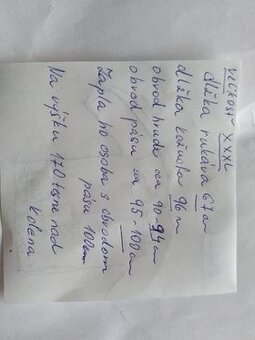 VEĽKOSŤ XXXL
dĺžka rukáva 67cm
dĺžka kožucha 96cm
obvod hrude cca 90-94cm
obvod pásu cca 95-100cm
Zapla ho osoba s obvodom
pásu 100cm
Na výšku 170 tesne nad
kolena